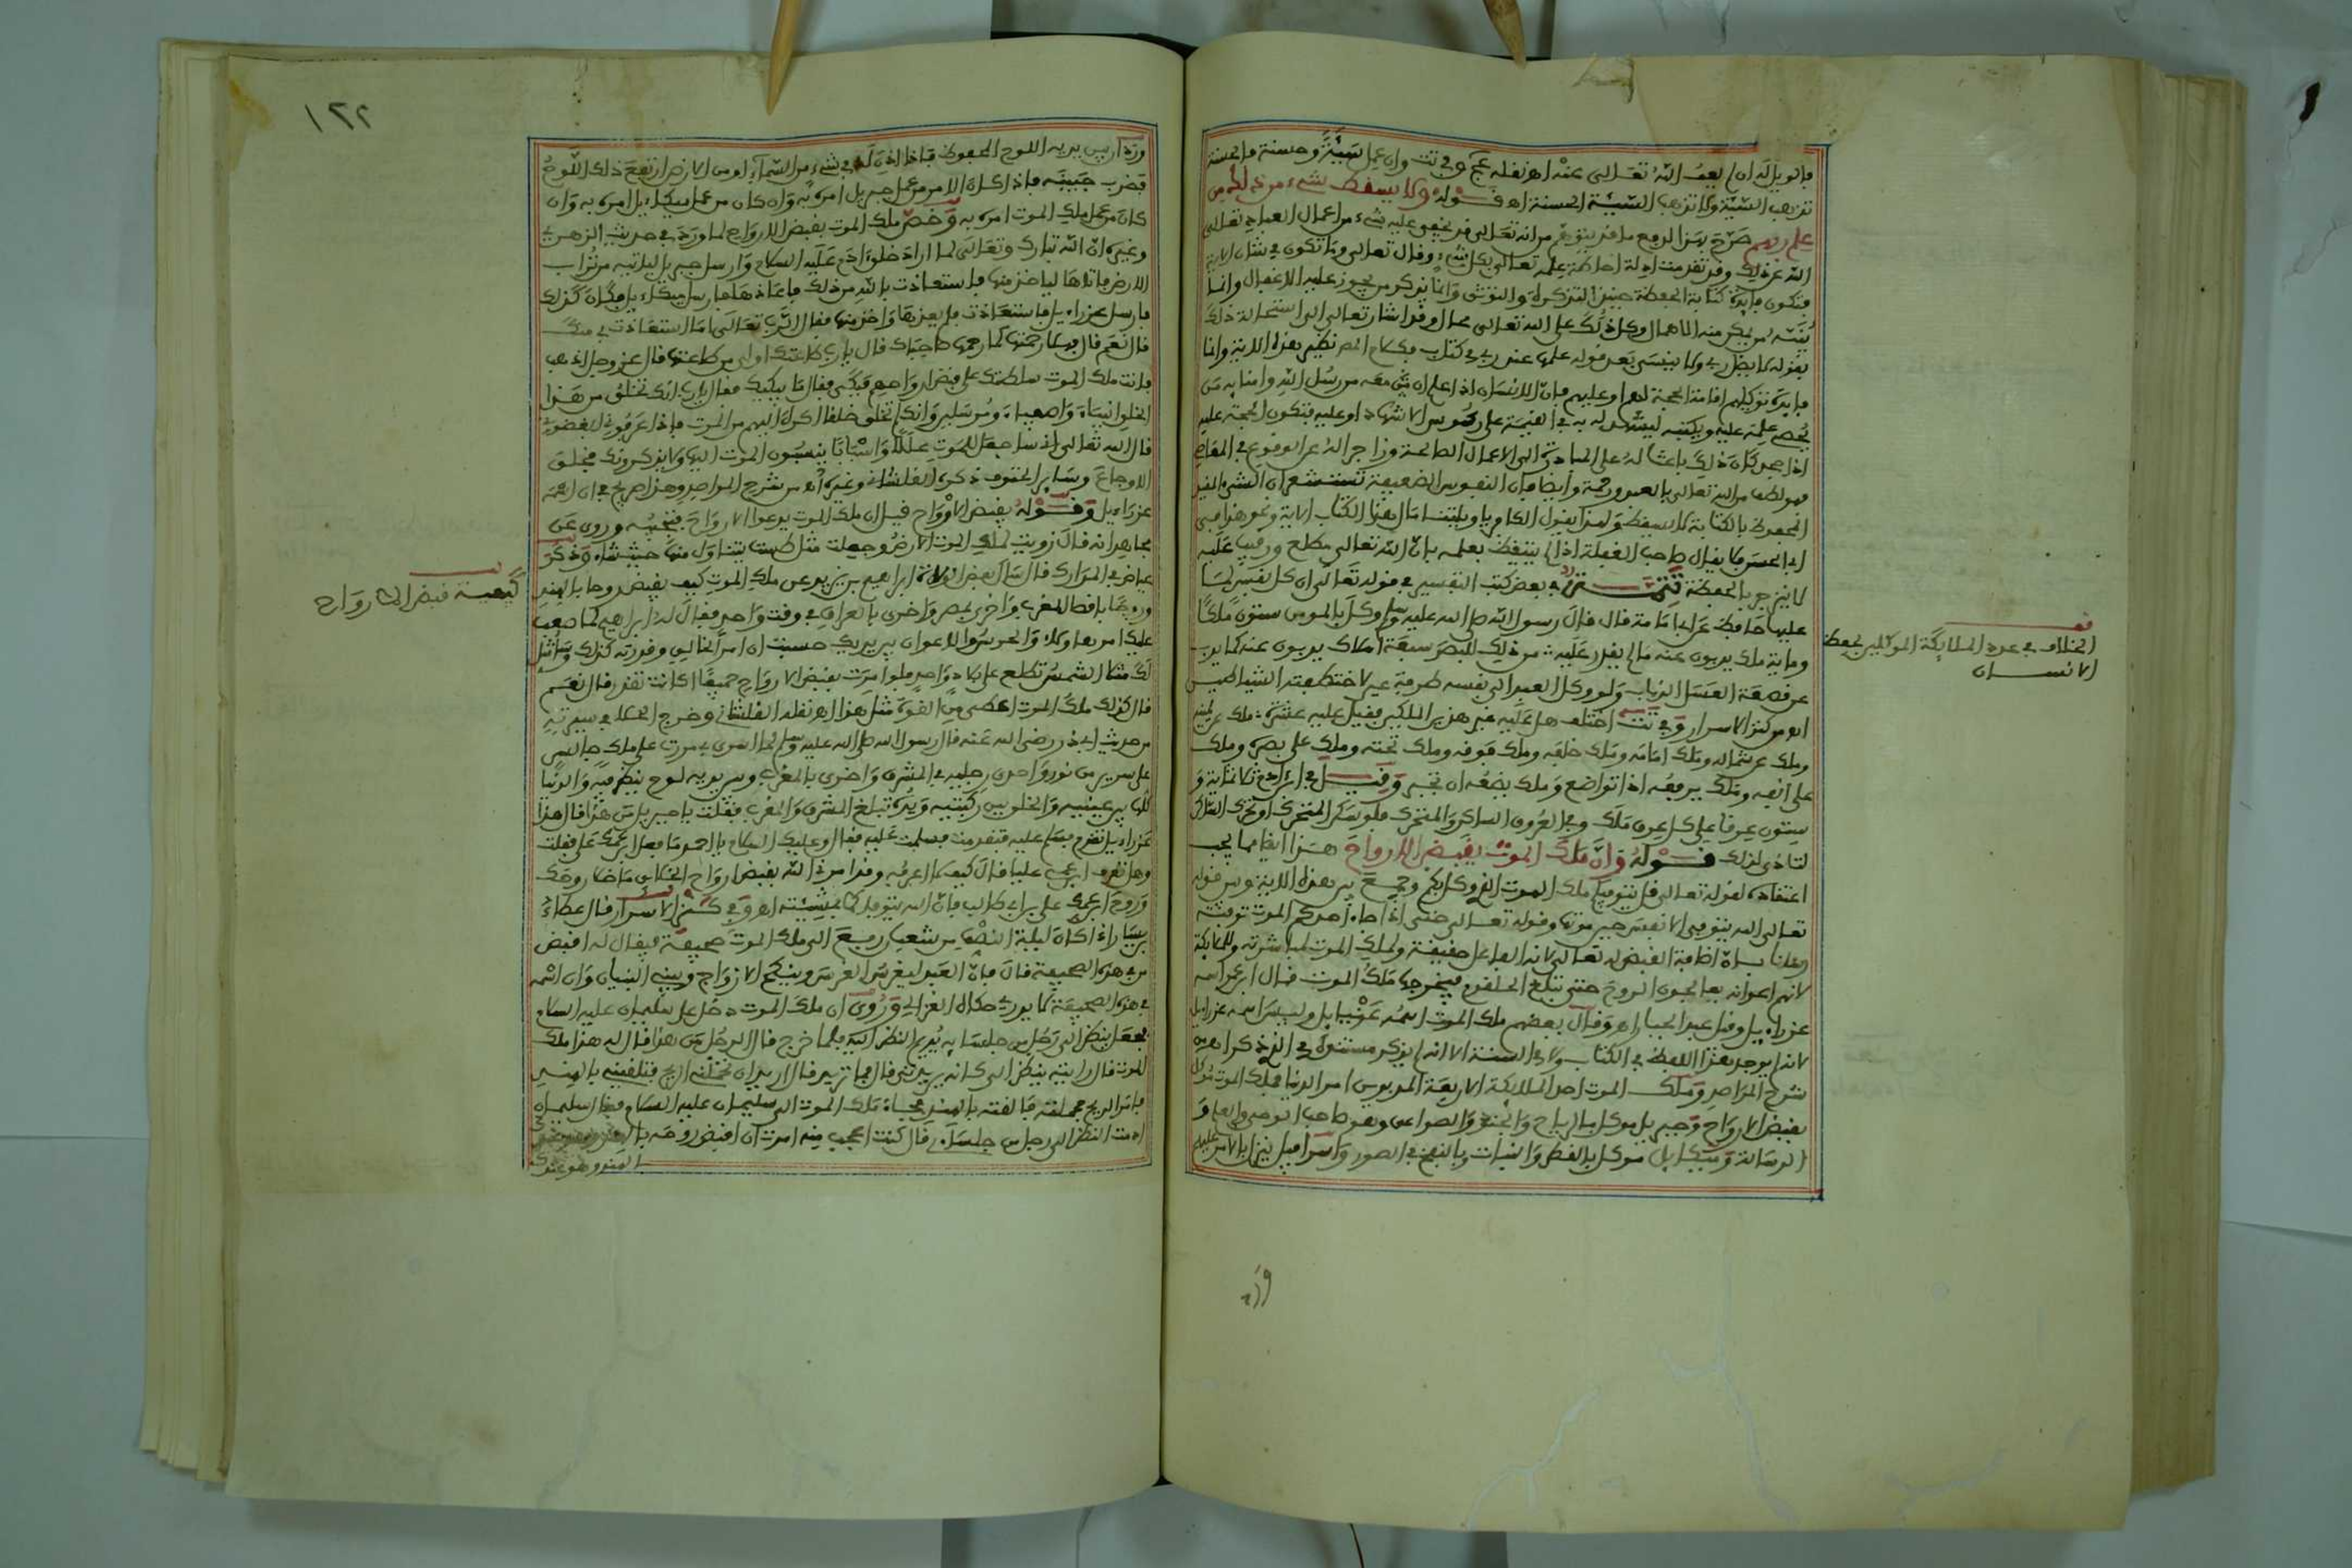 فالويل له ان لم يعف الله تعالى عنه اهـ نقله عج وفي تت وان عمل سيئة وحسنة فالحسنة
تذهب السيئة ولا تذهب السيئة الحسنة اهـ قوله ولا يسقط شيء من ذلك عن
علم ربهم صرح بهذا لدفع ما قد يتوهم من انه تعالى قد يخفى عليه شيء من اعمال العباد تعالى
الله عن ذلك وقد تقدمت ادلة احاطة علمه تعالى بكل شيء وقال تعالى وما تكون في شأن الاية
فتكون فايدة كتابة الحفظة حينئذ التذكرة والتوثق وانما يذكر من يجوز عليه الاغفال وانما
ينبه من يمكن منه الاهمال وكل ذلك على الله تعالى محال وقد اشار تعالى الى استحالة ذلك
بقوله لا يضل ربي ولا ينسى بعد قوله علمها عند ربي في كتاب وكلام المص نظير هذه الاية وانما
فايدة توكيلهم اقامة الحجة لهم او عليهم فان الانسان اذا علم ان ثم معه من رسل الله وامنايه من
يحصي علمه عليه ويكتبه ليشهد له به في القيمة على رءوس الاشهاد او عليه فتكون الحجة عليه
اذا جحد كان ذلك باعثا له على المبادرة الى الاعمال الصالحة وزاجرا له عن الوقوع في المعاصي
فهو لطف من الله تعالى بالعبد ورحمة وايضا فان النفوس الضعيفة تستشعر ان الشيء المقيد
المحفوظ بالكتابة لا يسقط ولهذا يقول الكافر يا ويلتنا مال هذا الكتاب الاية ونحو هذا فيبني
ابا الحسن فايقال صاحب الغفلة اذا لم يتيقظ بعلمه بان الله تعالى مطلع ورقيب عليه
لا ينزجر بالحفظة تتمة في بعض كتب التفسير في قوله تعالى ان كل نفس لما
عليها حافظ عن ابي امامة قال قال رسول الله صلى الله عليه وسلم وكل بالمومن ستون ملكا
وماية ملك يذبون عنه ما لم يقدر عليه من ذلك للبصر سبعة املاك يذبون عنه كما يذب
عن قصعة العسل الذباب ولو وكل العبد الى نفسه طرفة عين لاختطفته الشياطين
اهـ من كنز الاسرار وفي تت اختلف هل عليه غير هذين الملكين فقيل عليه عشرة ملك عن يمينه
وملك عن شماله وملك امامه وملك خلفه وملك فوقه وملك تحته وملك على بصره وملك
على انفه وملك يرفعه اذا تواضع وملك يضعه ان تجبر وقيل في ابن ادم ثلاثماية و
ستون عرقا على كل عرق ملك وفي العروق الساكن والمتحرك فلو سكن المتحرك او تحرك الساكن
لتاذى لذلك قوله وان ملك الموت يقبض الارواح هذا ايضا مما يجب
اعتقاده لقوله تعالى قل يتوفيكم ملك الموت الذي وكل بكم وجمع بين هذه الاية وبين قوله
تعالى الله يتوفى الانفس حين موتها وقوله تعالى حتى اذا جاء احدكم الموت توفته
رسلنا بان اضافة القبض له تعالى لانه الفاعل حقيقة ولملك الموت لمباشرته وللملايكة
لانهم اعوانه يعالجون الروح حتى تبلغ الحلقوم فيخرجها ملك الموت قال ابن عمر اسمه
عزراءيل وقيل عبد الجبار اهـ وقال بعضهم ملك الموت اسمه عزرايل وليس اسمه عزراييل
لانه لم يوجد بهذا اللفظ في الكتاب ولا في السنة الا انه لم يذكر مستنده في الذي ذكر اهـ من
شرح المراصد وملك الموت احد الملايكة الاربعة المدبرين امر الدنيا فملك الموت موكل
بقبض الارواح وجبريل موكل بالرياح والجنود والصواعق وهو صاحب الوحي والعلم و
الرسالة وميكايل موكل بالقطر والنبات وبالنفخ في الصور واسرافيل ينزل بالامر عليهم
فف
الخلاف في عدد الملايكة الموكلين بحفظ
الانسان
ورد
١٢٢
ورد ان بين يديه اللوح المحفوظ فاذا اذن له في شيء من السماء او من الارض ارتفع ذلك اللوح
فضرب جبينه فاذا كان الامر من عمل جبريل امره به وان كان من عمل ميكاءيل امره به وان
كان من عمل ملك الموت امره به وخص ملك الموت بقبض الارواح لما ورد في حديث الزهري
وغيره ان الله تبارك وتعالى لما اراد خلق ادم عليه السلام وارسل جبريل لياتيه من تراب
الارض فاتاها لياخذ منها فاستعاذت بالله من ذلك فاعاذها فارسل ميكاءيل فكان كذلك
فارسل عزراءيل فاستعاذت فلم يعذها واخذ منها فقال الله تعالى اما استعاذت بي منك
قال نعم قال فهلا رحمتها كما رحمها صاحباك قال يا رب طاعتك اولى من طاعتها قال عز وجل اذهب
فانت ملك الموت سلطتك على قبض ارواحهم فبكى فقال ما يبكيك فقال يا رب انك تخلق من هذا
الخلق انبياء واصفياء ومرسلين وانك لم تخلق خلقا اكره اليهم من الموت فاذا عرفوني ابغضوني
قال الله تعالى اني ساجعل للموت عللا واسبابا ينسبون الموت اليها ولا يذكرونك فخلق
الاوجاع وساير الحتوف ذكره الفلشاني وغيره اهـ من شرح المراصد وهذا صريح في ان اسمه
عزراءيل وقوله يقبض الارواح قيل ان ملك الموت يدعوا الارواح فتجيبه وروي عن
مجاهد انه قال زويت لملك الموت الارض وجعلت مثل طست يتناول منها حيث شاء وذكر
عياض في المدارك قال سال بعض الولاة ابراهيم بن يزيد عن ملك الموت كيف يقبض روحا بالهند
وروحا باقصا المغرب واخرى بمصر واخرى بالعراق في وقت واحد فقال له ابراهيم لما صعب
لك مثل الشمس تطلع على بلاد واحد فلو امرت بقبض الارواح جميعا اكانت تقدر قال نعم
قال كذلك ملك الموت اعطي من القوة مثل هذا اهـ نقله الفلشاني وخرج الحلة في سيرته
من حديث ابي ذر رضي الله عنه قال رسول الله صلى الله عليه وسلم لما اسري بي مررت على ملك جالس
على سرير من نور واحدى رجليه في المشرق واخرى بالمغرب وبين يديه لوح ينظر فيه والدنيا
كلها بين عينيه والخلق بين ركبتيه ويده تبلغ المشرق والمغرب فقلت يا جبريل من هذا قال هذا
عزراءيل تقدم فسلم عليه فتقدمت فسلمت عليه فقال وعليك السلام يا احمد ما فعل ابن عمك علي فقلت
وهل تعرف ابن عمي عليا قال كيف لا اعرفه وقد امرني الله بقبض ارواح الخلايق ما خلا روحك
وروح ابن عمك علي بن ابي طالب فان الله يتوفاكما بمشيئته اهـ وفي كنز الاسرار قال عطاء
بن يسار اذا كان ليلة النصف من شعبان رفع الى ملك الموت صحيفة فيقال له اقبض
من في هذه الصحيفة قال فان العبد ليغرس الغرس وينكح الازواج ويبني البنيان وان اسمه
في هذه الصحيفة لما يدري حكاه الغزالي وروي ان ملك الموت دخل على سليمان عليه السلام
فجعل ينظر الى رجل من جلسايه يديم النظر اليه فلما خرج قال الرجل من هذا قال له هذا ملك
الموت قال رايته ينظر الي كانه يريدني قال فما تريد قال اريد ان تحملني الريح فتلقيني بالهند
فامر الريح فحملته فالقته بالهند فجاء ملك الموت الى سليمان عليه السلام فقال سليمان
ادمت النظر الى رجل من جلساءي قال كنت اعجب منه امرت ان اقبض روحه
بالهند وهو عندك
كيفية قبض الارواح